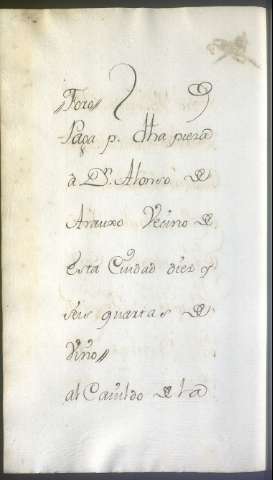 //Foro//
Paga p. dha pieza
à D. Alonso de
Arauxo Vecino de
esta Ciudad diez y
seis quartas de
Viño//
al Cavildo de la